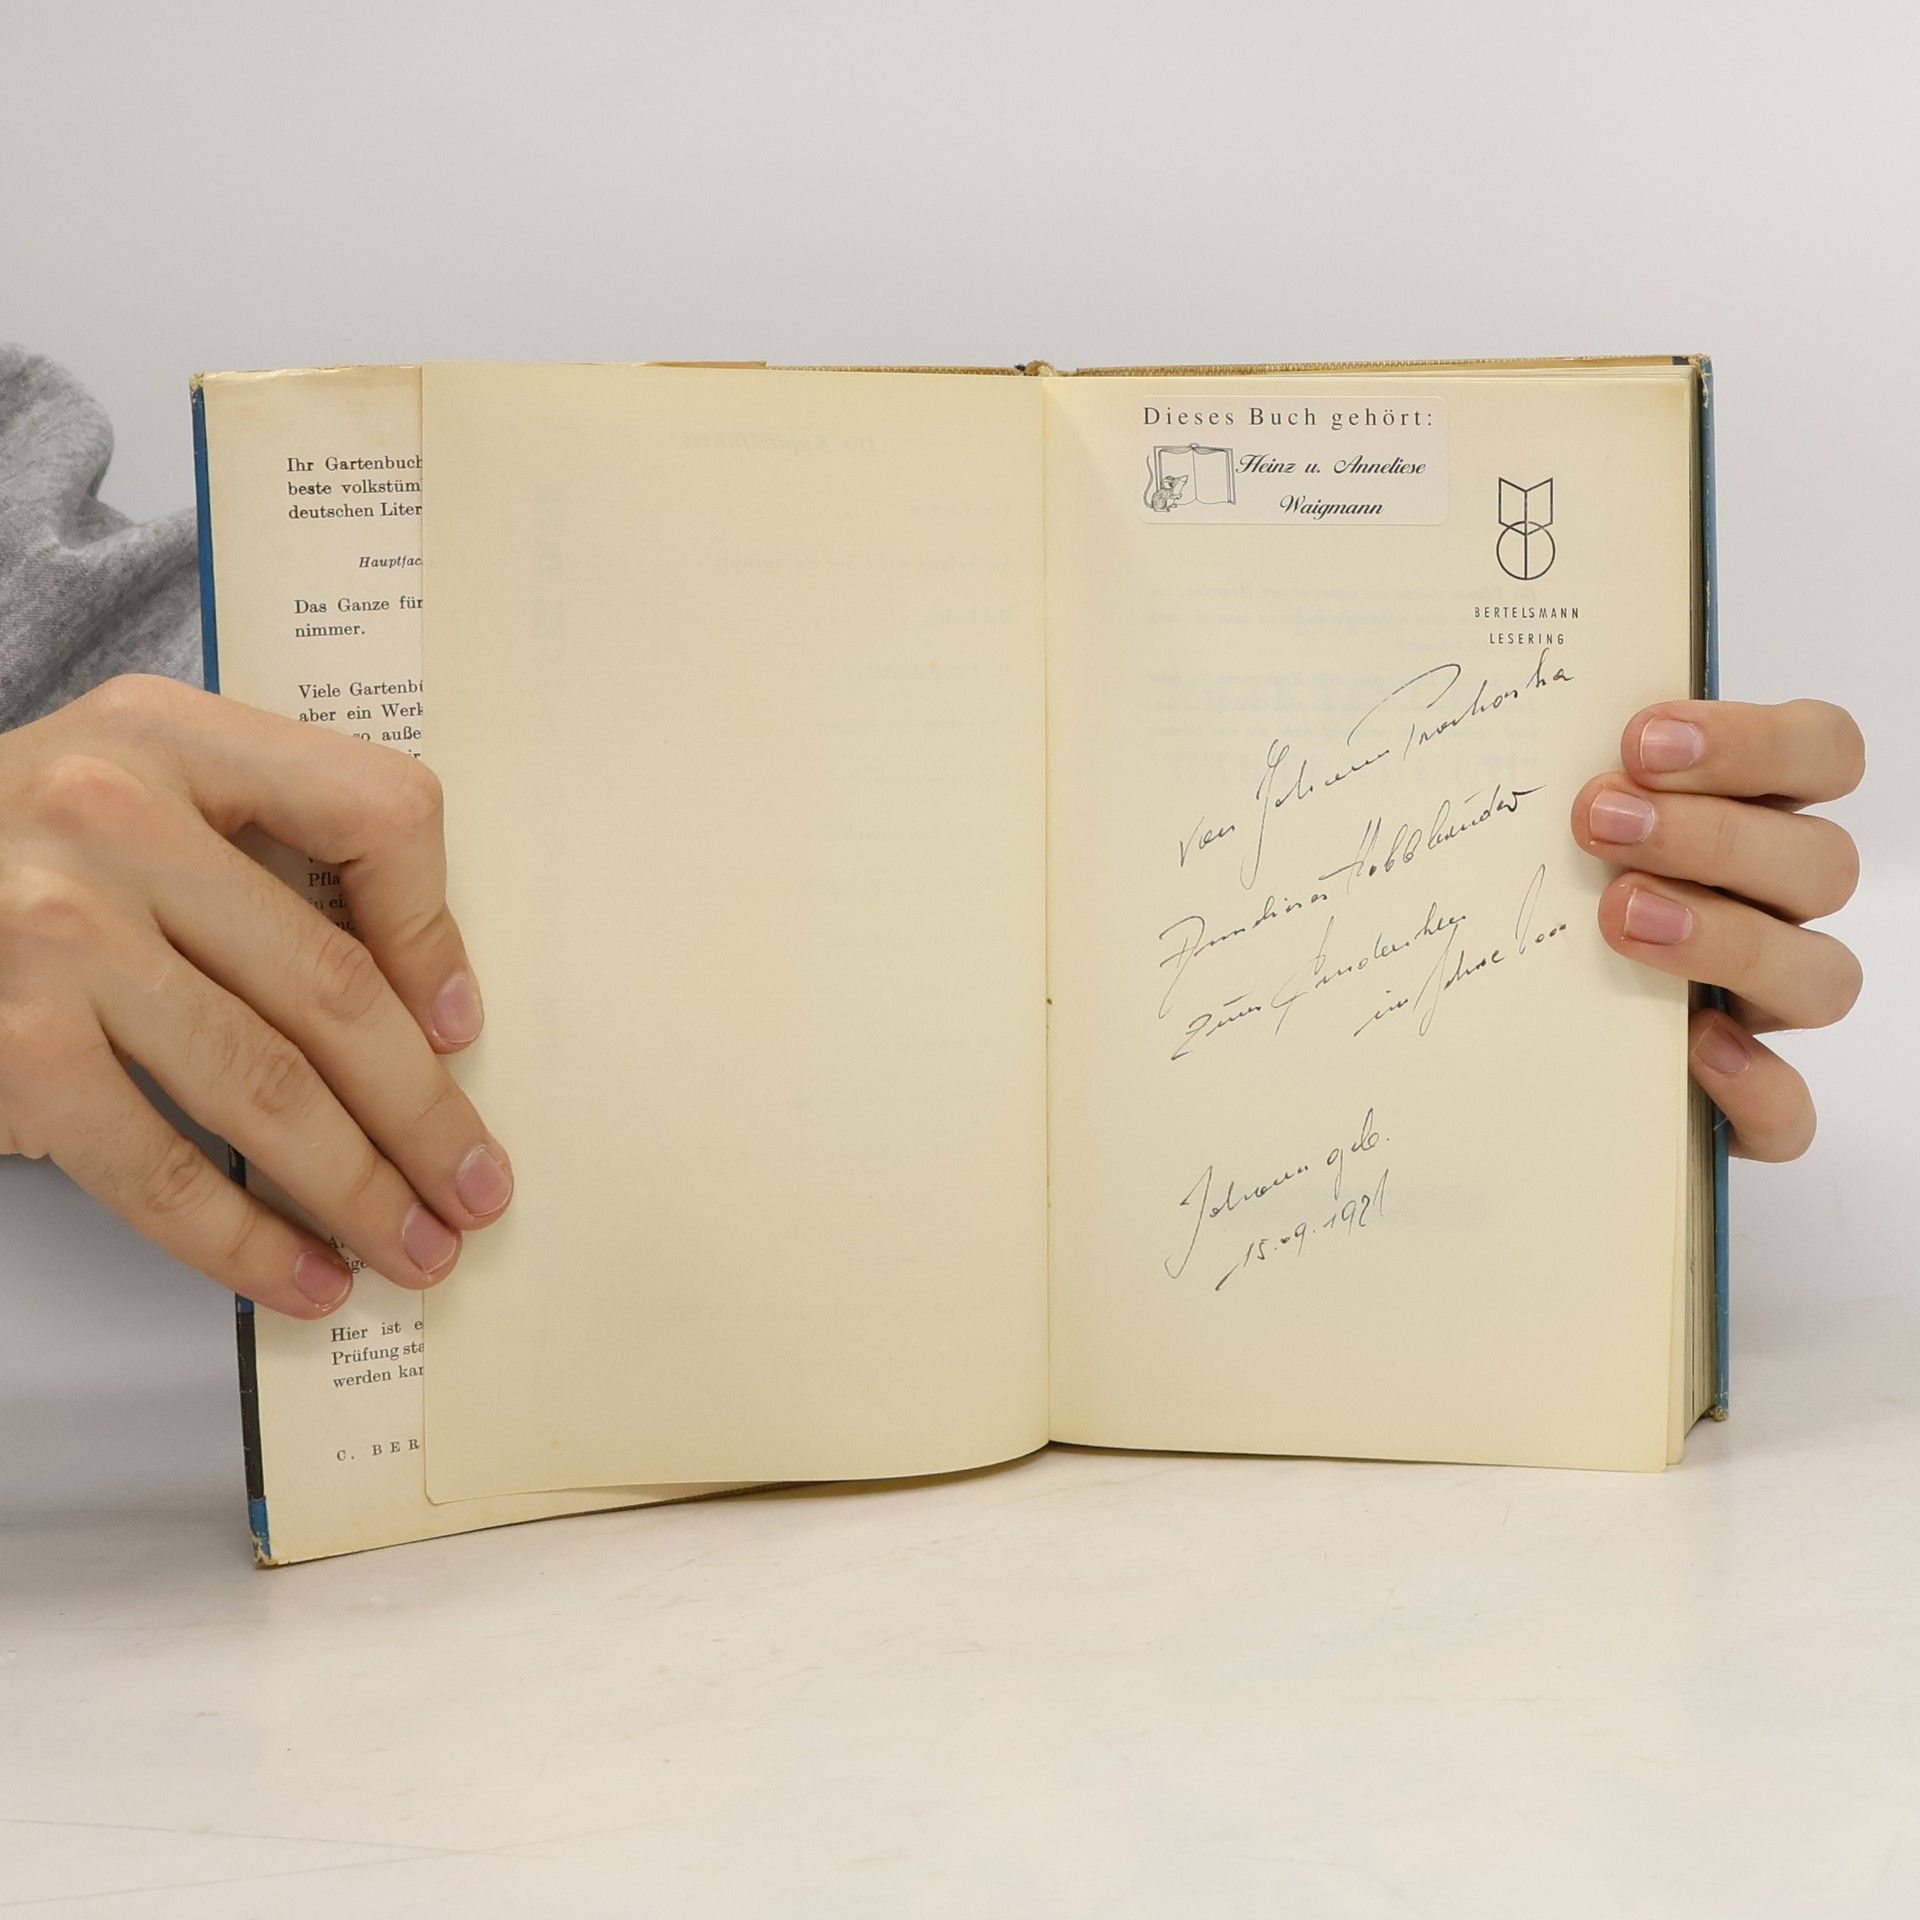 Ihr Gartenbuch
beste volkstüm
deutschen Liter
Hauptfac
Das Ganze für
nimmer.
Viele Gartenbü
aber ein Werk
so auße
Pfla
in ei
Hier ist e
Prüfung sta
werden kan
C. BER
Dieses Buch gehört:
Heinz u. Anneliese
Waigmann
BERTELSMANN
LESERING
von Johann
zum Andenken
im Jahre
Johann geb.
15.09.1921